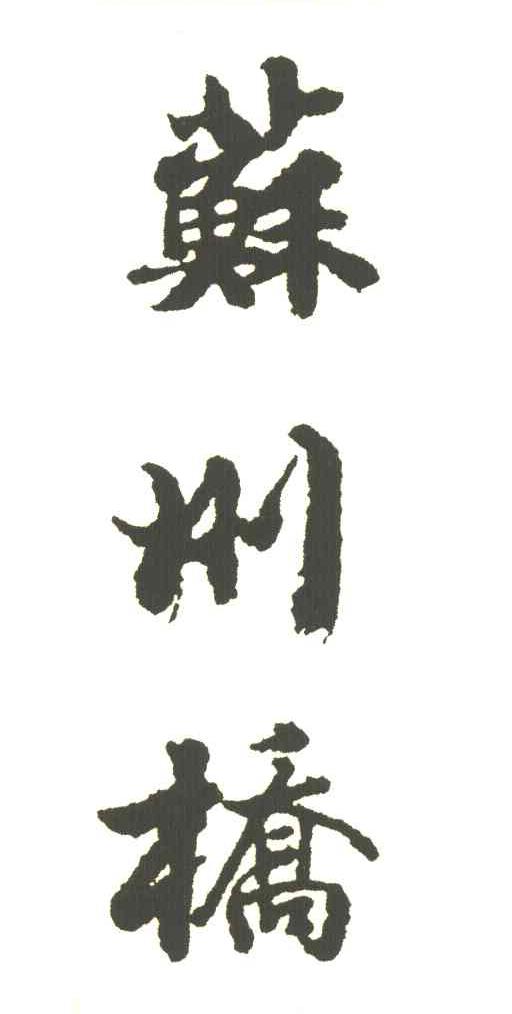 蘇州橋